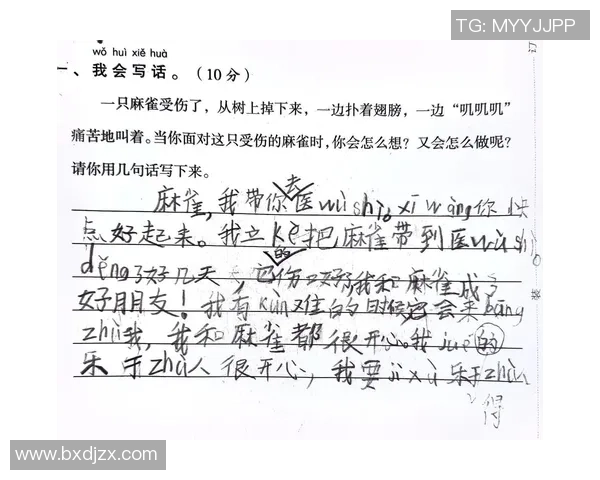 TG: MYYJJPP
wǒ huì xiě huà
一、我会写话。（10分）
一只麻雀受伤了，从树上掉下来，一边扑着翅膀，一边“叽叽叽”
痛苦地叫着。当你面对这只受伤的麻雀时，你会怎么想？又会怎么做呢？
请你用几句话写下来。
去
麻雀，我带你医wù shì。xī wàng你快
点好起来。我立kè把麻雀带到医wù shì。
的
děng了好几天，它伤口好我和麻雀成了
好朋友！我有kùn难的时候它会来bāng
zhù我，我和麻雀都很开心。我jué的
乐于zhù人很开心，我要jì xù乐于zhù人
得
订
装
www.bxdjzx.com